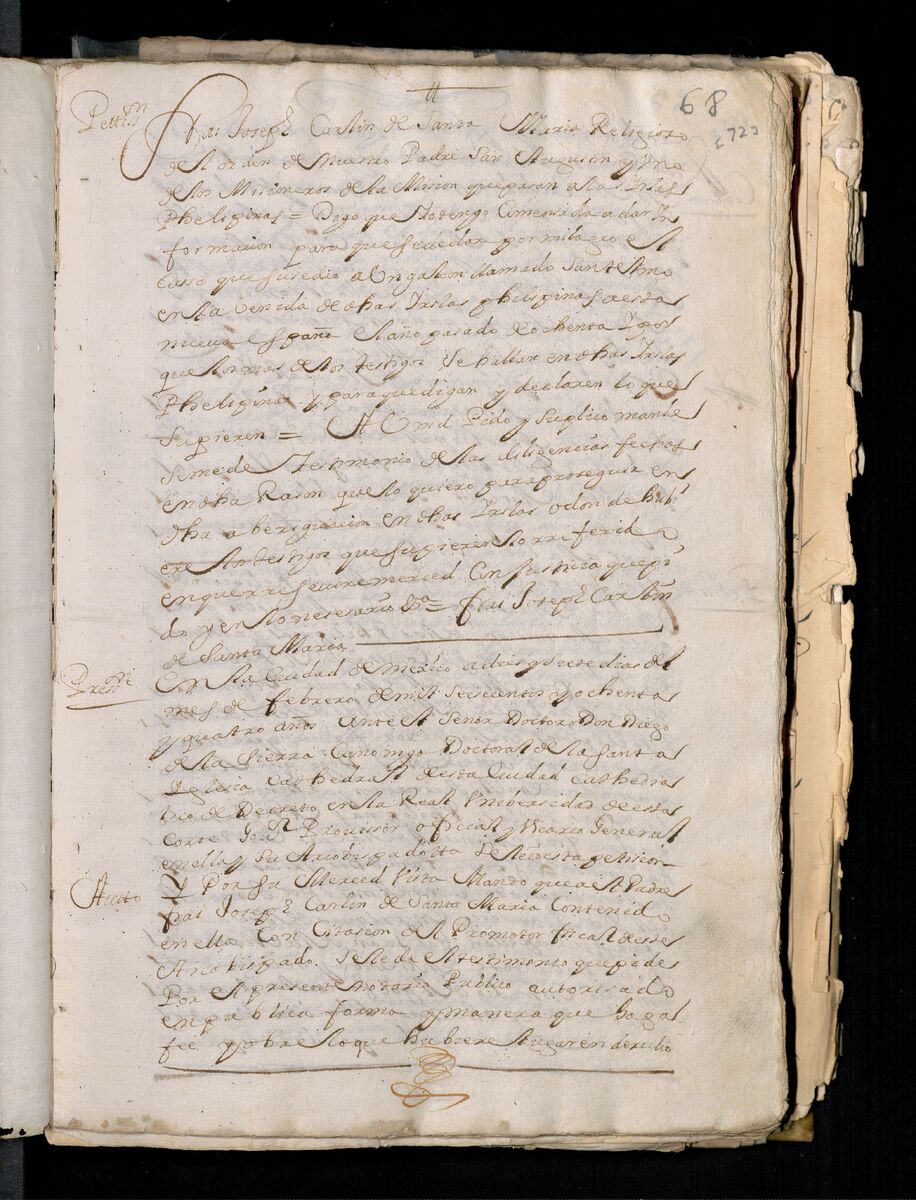 68
Petiⁿ
frai Joseph Carlin de Santa Maria Religioso
del orden de Nuestro Padre San Augustin y Uno
de los Misioneros de la Mision que pasan a las Yslas
Phelipinas = Digo que Yo tengo Comensada a dar In
formacion para que se declare por milagro el
casso que susedio a Un galeon llamado San telmo
en la benida de dhas Yslas philipinas a esta
nueva españa el año pasado de ochenta Y por
que los mas de los testigos Se hallan en dhas Yslas
Phelipinas y para que digan y declaren lo que
Supieren = A Vmd Pido y Suplico mande
Se me de Testimonio de las diligencias fechas
en dha Rason que lo quiero para proseguir en
dha aberiguacion en dhas Yslas o donde hubi
ere los testigos que supieren lo rreferido
en que rreseuire merced Con Justicia que pi
do y en lo nesesario &ª = frai Joseph Carlin
de Santa Maria
Presⁿᵉ
En la Ciudad de mexico a dies y siete dias del
mes de febrero de mil Seiscientos y ochenta
y quatro años ante el Señor Doctor Don Diego
de la Sierra Canonigo Doctoral de la Santa
Yglesia Cathedral desta Ciudad Cathedra
tico de Decreto en la Real Vnibersidad de esta
Corte Jues Provissor official y Vicario General
en ella y Su Arcobispado &ta Se leio esta petision
Aucto
Y Por Su Merced Vista Mando que a el Padre
frai Joseph Carlin de Santa Maria Contenido
en ella Con Citasion del Promotor fiscal deste
Arcobispado Se le de el testimonio que pide
Por el presente notario Publico autorisado
en publica forma y manera que haga
fee y sobre lo que hubiere lugar en derecho